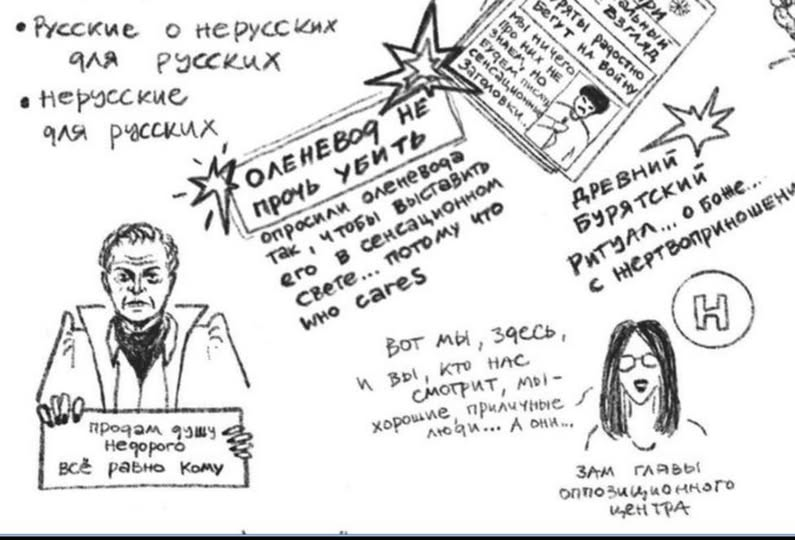 • Русские о нерусских
для русских
• нерусские
для русских
ОЛЕНЕВОД НЕ
ПРОЧЬ УБИТЬ
опросили оленевода
так, чтобы выставить
его в сенсационном
свете... потому что
who cares
ВЗГЛЯД
радостно
БЕГУТ НА ВОЙНУ
Мы ничего
про них не
знаем, но
будем писать
сенсационные
Заголовки...
ДРЕВНИЙ
БУРЯТСКИЙ
РИТУАЛ... о боже...
с жертвоприношени
Н
Вот мы, здесь,
и вы, кто нас
смотрит, мы-
хорошие, приличные
люди... А они...
ЗАМ ГЛАВЫ
ОППОЗИЦИОННОГО
ЦЕНТРА
продам душу
недорого
всё равно кому